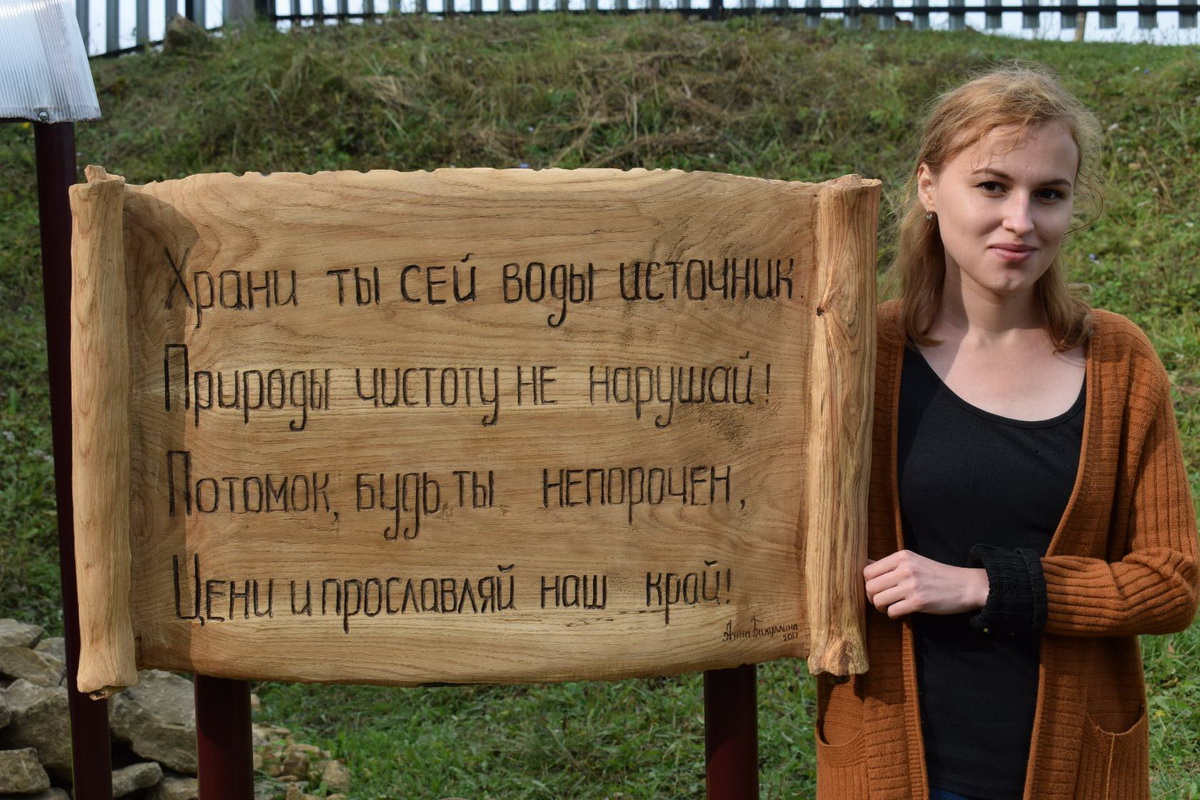 Храни ты сей воды источник.
Природы чистоту не нарушай!
Потомок, будь ты непорочен,
Цени и прославляй наш край!
Анна Бикуллина
2017